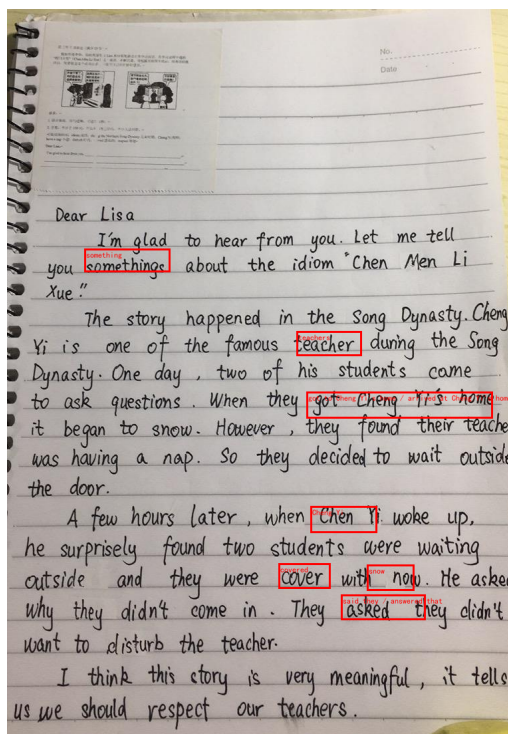 No.
Date
Dear Lisa
I'm glad to hear from you. Let me tell
something
you somethings about the idiom "Chen Men Li
Xue."
The story happened in the Song Dynasty. Cheng
teachers
Yi is one of the famous teacher during the Song
Dynasty. One day, two of his students came
to ask questions. When they got Cheng Yi's home
it began to snow. However, they found their teache
was having a nap. So they decided to wait outside
the door.
A few hours later, when Chen Yi woke up,
he surprisely found two students were waiting
covered snow
outside and they were cover with now. He asked
said they / answered that
why they didn't come in. They asked they didn't
want to disturb the teacher.
I think this story is very meaningful, it tells
us we should respect our teachers.